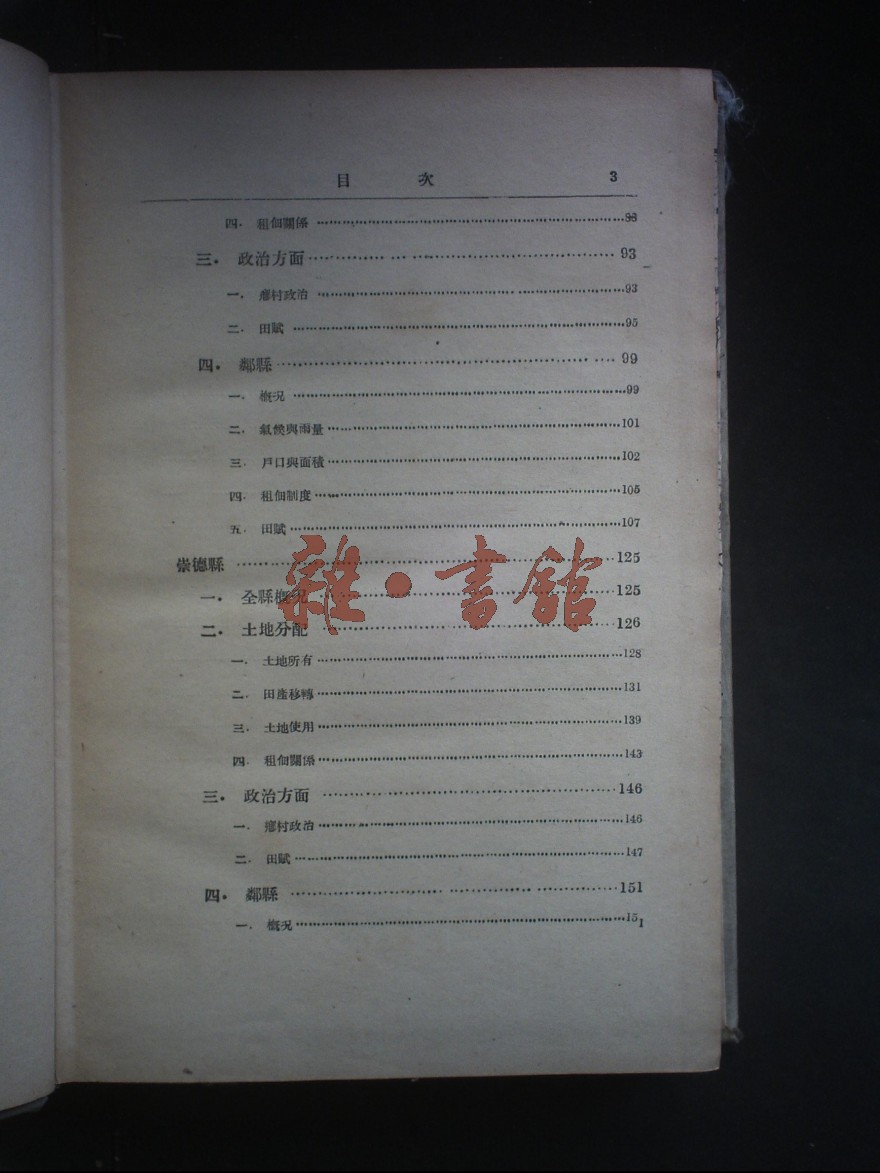 目 次 3
四. 租佃關係 88
三. 政治方面 93
一. 鄉村政治 93
二. 田賦 95
四. 鄰縣 99
一. 概况 99
二. 氣候與雨量 101
三. 戶口與面積 102
四. 租佃制度 105
五. 田賦 107
崇德縣 125
一. 全縣概况 125
二. 土地分配 126
一. 土地所有 128
二. 田產移轉 131
三. 土地使用 139
四. 租佃關係 143
三. 政治方面 146
一. 鄉村政治 146
二. 田賦 147
四. 鄰縣 151
一. 概况 151
雜·書館